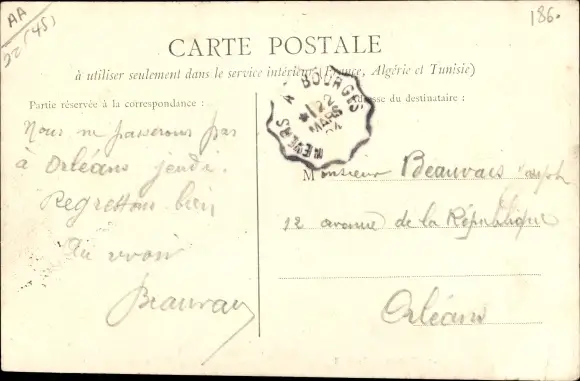 AA
22 (45)
186.
CARTE POSTALE
à utiliser seulement dans le service intérieur (France, Algérie et Tunisie)
Partie réservée à la correspondance :
Adresse du destinataire :
NEVERS À BOURGES
22
MARS
04
Nous ne passerons pas
à Orléans jeudi.
Regrettons bien
Au revoir
Beauvais
Monsieur Beauvais Joseph
12 avenue de la République
Orléans